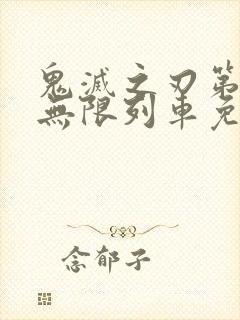 鬼滅之刃第
無限列車免
念郁子